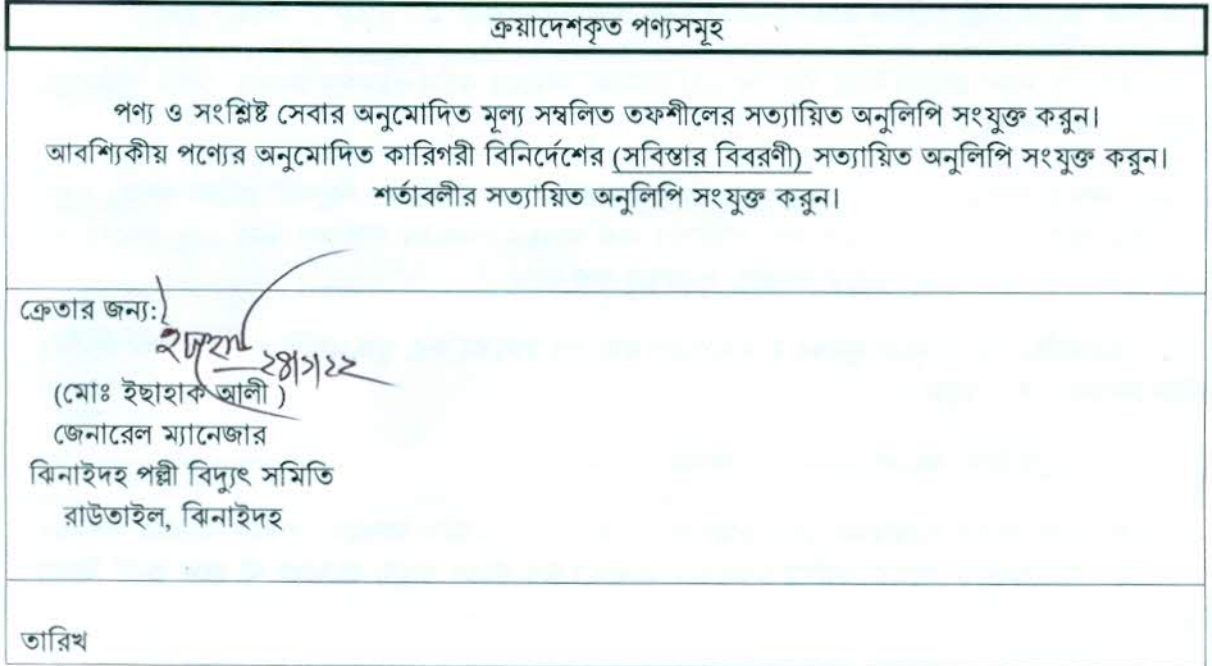 ক্রয়াদেশকৃত পণ্যসমূহ
পণ্য ও সংশ্লিষ্ট সেবার অনুমোদিত মূল্য সম্বলিত তফশীলের সত্যায়িত অনুলিপি সংযুক্ত করুন।
আবশ্যিকীয় পণ্যের অনুমোদিত কারিগরী বিনির্দেশের (সবিস্তার বিবরণী) সত্যায়িত অনুলিপি সংযুক্ত করুন।
শর্তাবলীর সত্যায়িত অনুলিপি সংযুক্ত করুন।
ক্রেতার জন্য:
(মোঃ ইছাহাক আলী )
জেনারেল ম্যানেজার
ঝিনাইদহ পল্লী বিদ্যুৎ সমিতি
রাউতাইল, ঝিনাইদহ
তারিখ